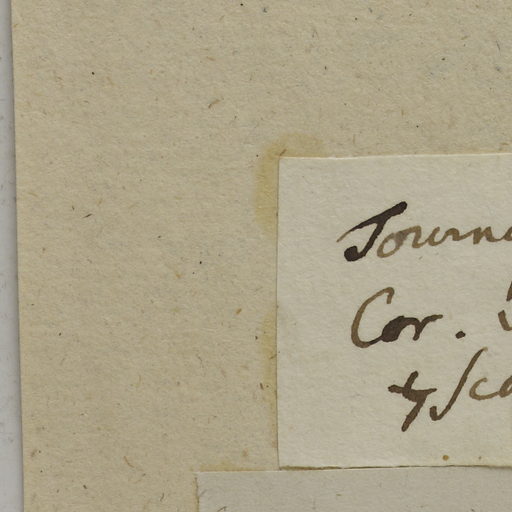 Journa
Cor.
& Sca